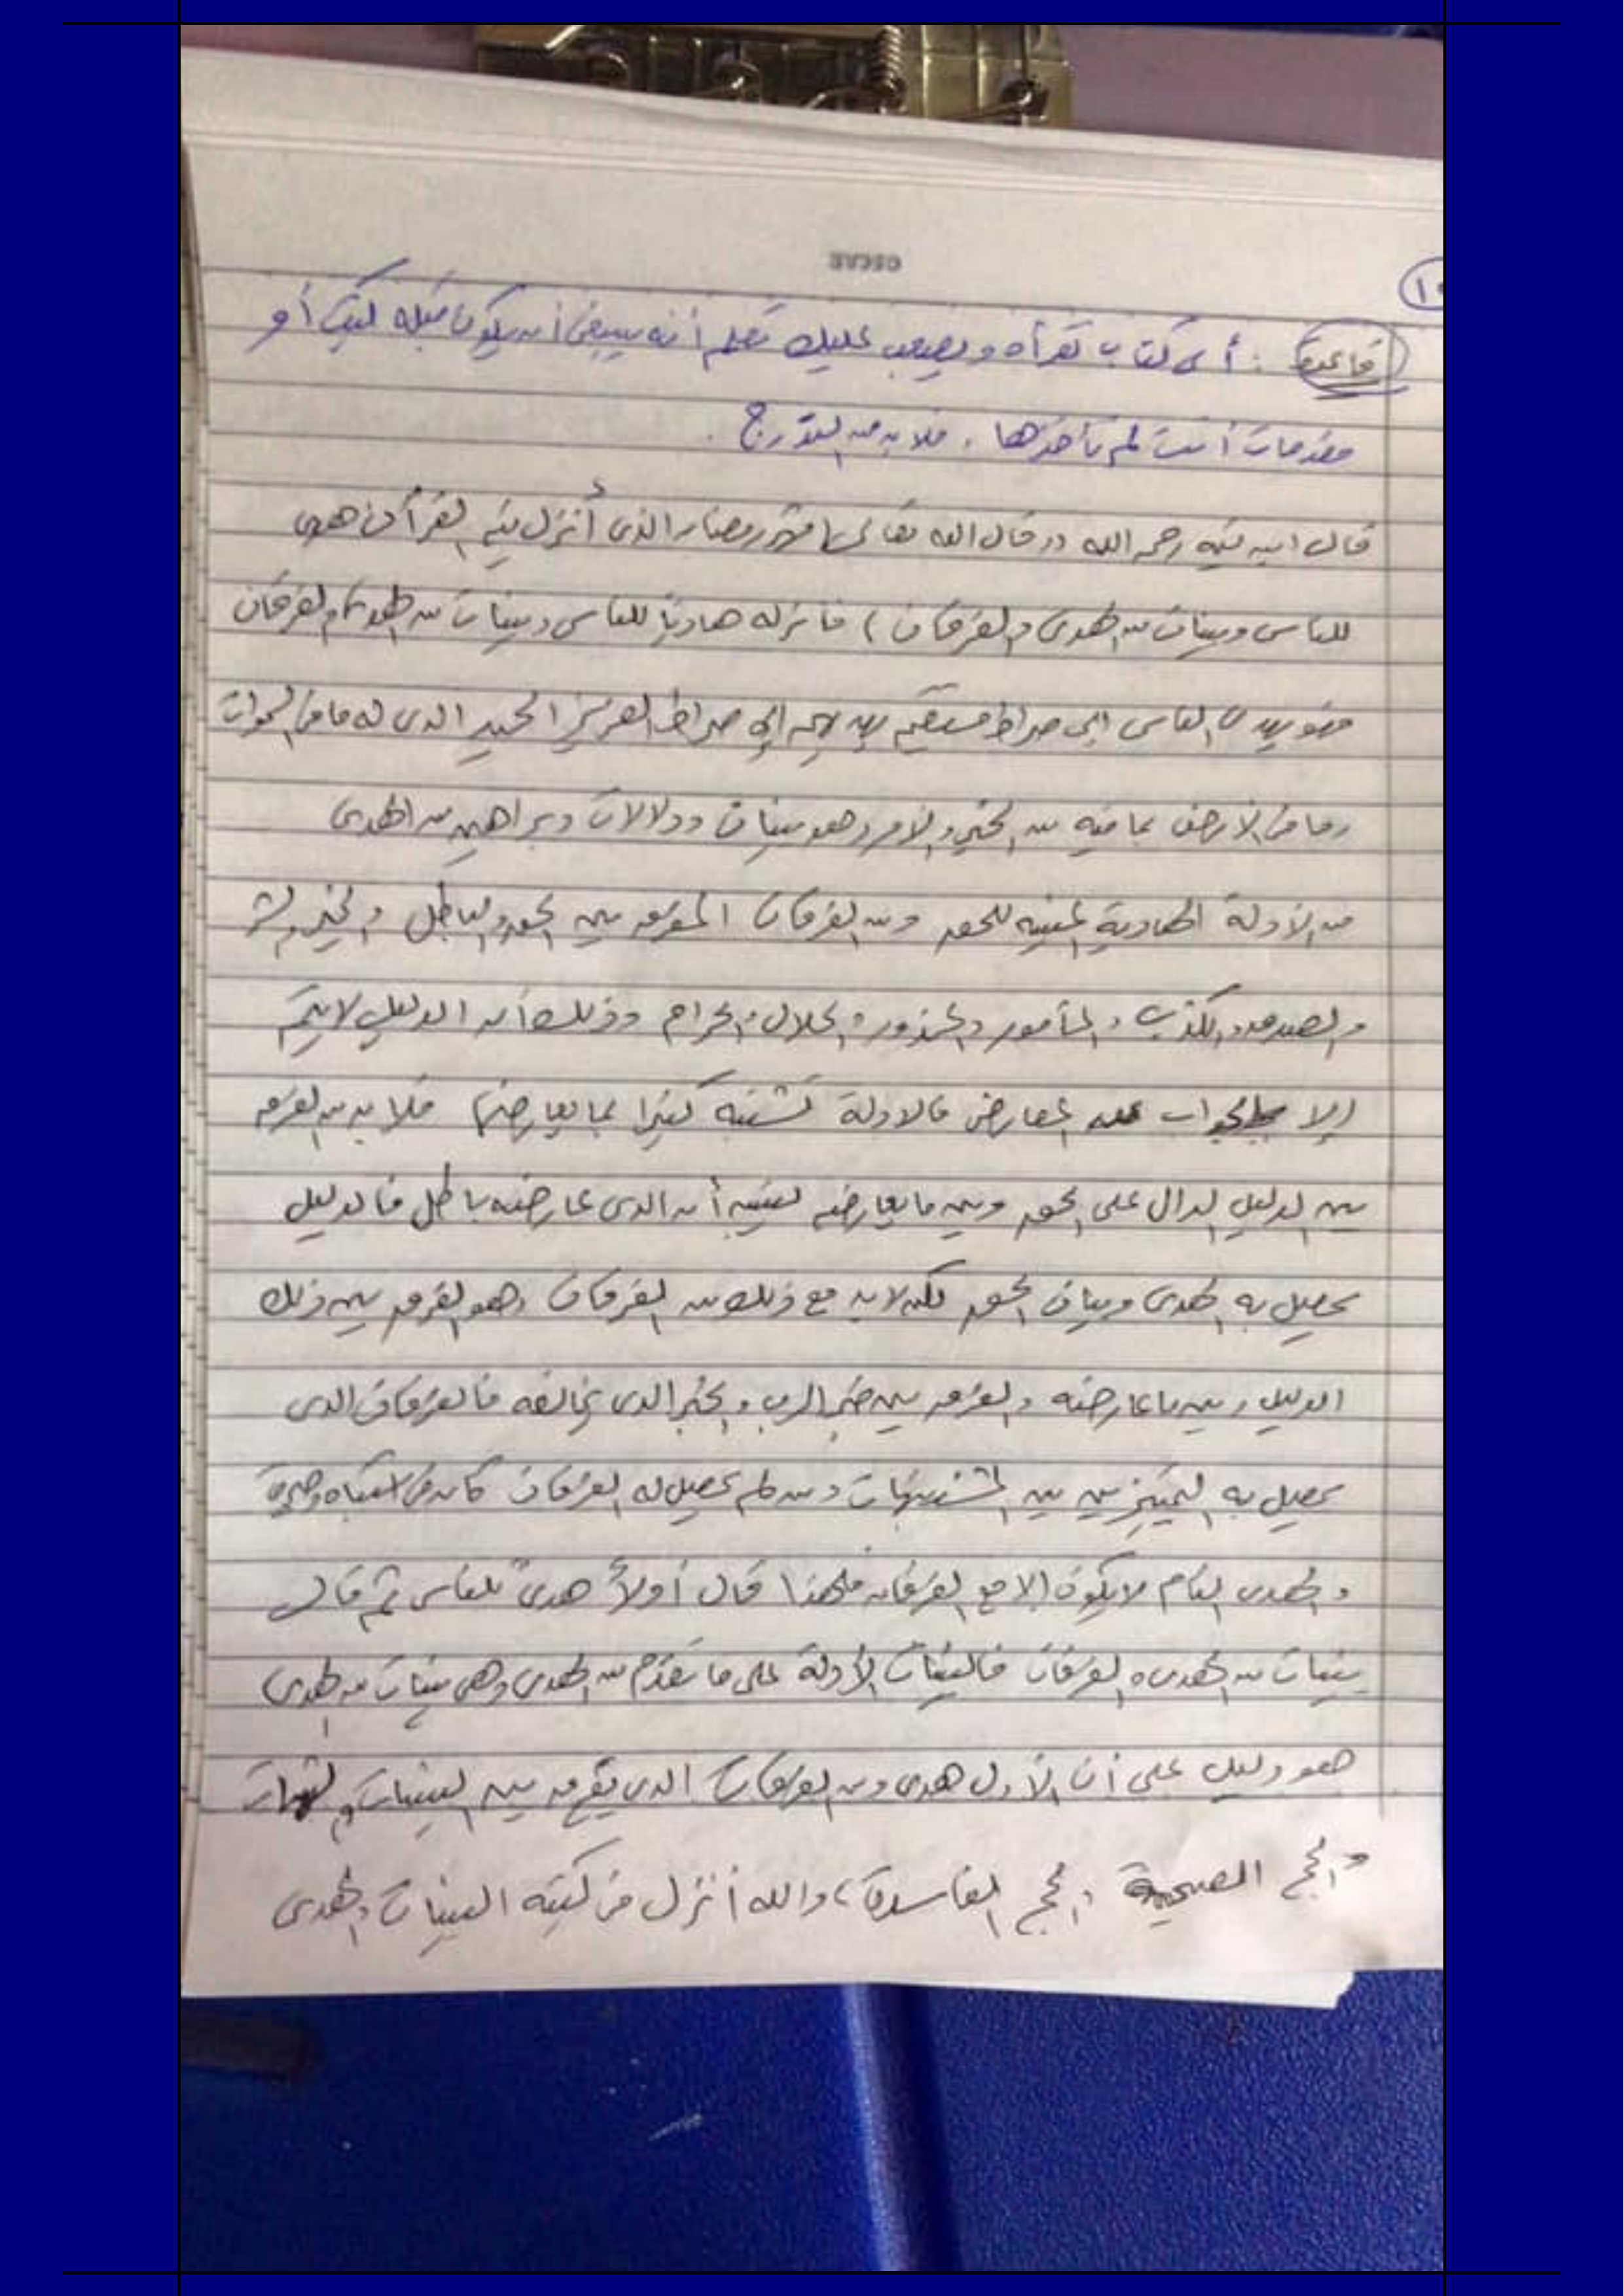 قاعدة : أى كتاب تقرأه ويصعب عليك تعلم أنه ينبغى أن يكون قبله كتب أو
مقدمات أنت لم تأخذها ، فلا بد من التدرج .
قال ابن تيمية رحمه الله (( وقال الله تعالى ( شهر رمضان الذى أُنزل فيه القرآن هدى
للناس وبينات من الهدى والفرقان ) فأنزله هاديًا للناس وبينات من الهدى والفرقان
فهو يهدى الناس إلى صراط مستقيم يهديهم إلى صراط العزيز الحميد الذى له ما فى السموات
وما فى الأرض بما فيه من الخبر والأمر وهو بينات ودلالات وبراهين من الهدى
من الأدلة الهادية المبينه للحق ومن الفرقان المفرق بين الحق والباطل والخير والشر
والصدق والكذب والمأمور والمحذور والحلال والحرام وذلك أن الدليل لا يتم
إلا بالجواب عن المعارض فالادلة تشتبه كثيرا بما يعارضها فلا بد من الفرق
بين الدليل الدال على الحق وبين ما يعارضه ليتبين أن الذى عارضه باطل فالدليل
يحصل به الهدى وبيان الحق لكن لا بد مع ذلك من الفرقان وهو الفرق بين ذلك
الدليل وبين ما عارضه والفرق بين خبر الرب والخبر الذى يخالفه فالفرقان الذى
يحصل به التمييز بين المشتبهات ومن لم يحصل له الفرقان كان فى اشتباه وحيرة
والهدى التام لا يكون إلا مع الفرقان فلهذا قال أولاً هدىً للناس ثم قال
بينات من الهدى والفرقان فالبينات الأدلة على ما تقدم من الهدى وهى بينات من الهدى
هو دليل على أن الأول هدى ومن الفرقان الذى يفرق بين البينات والشبهات
والحجج الصحيحة والحجج الفاسدة ، والله أنزل فى كتبه البينات والهدى